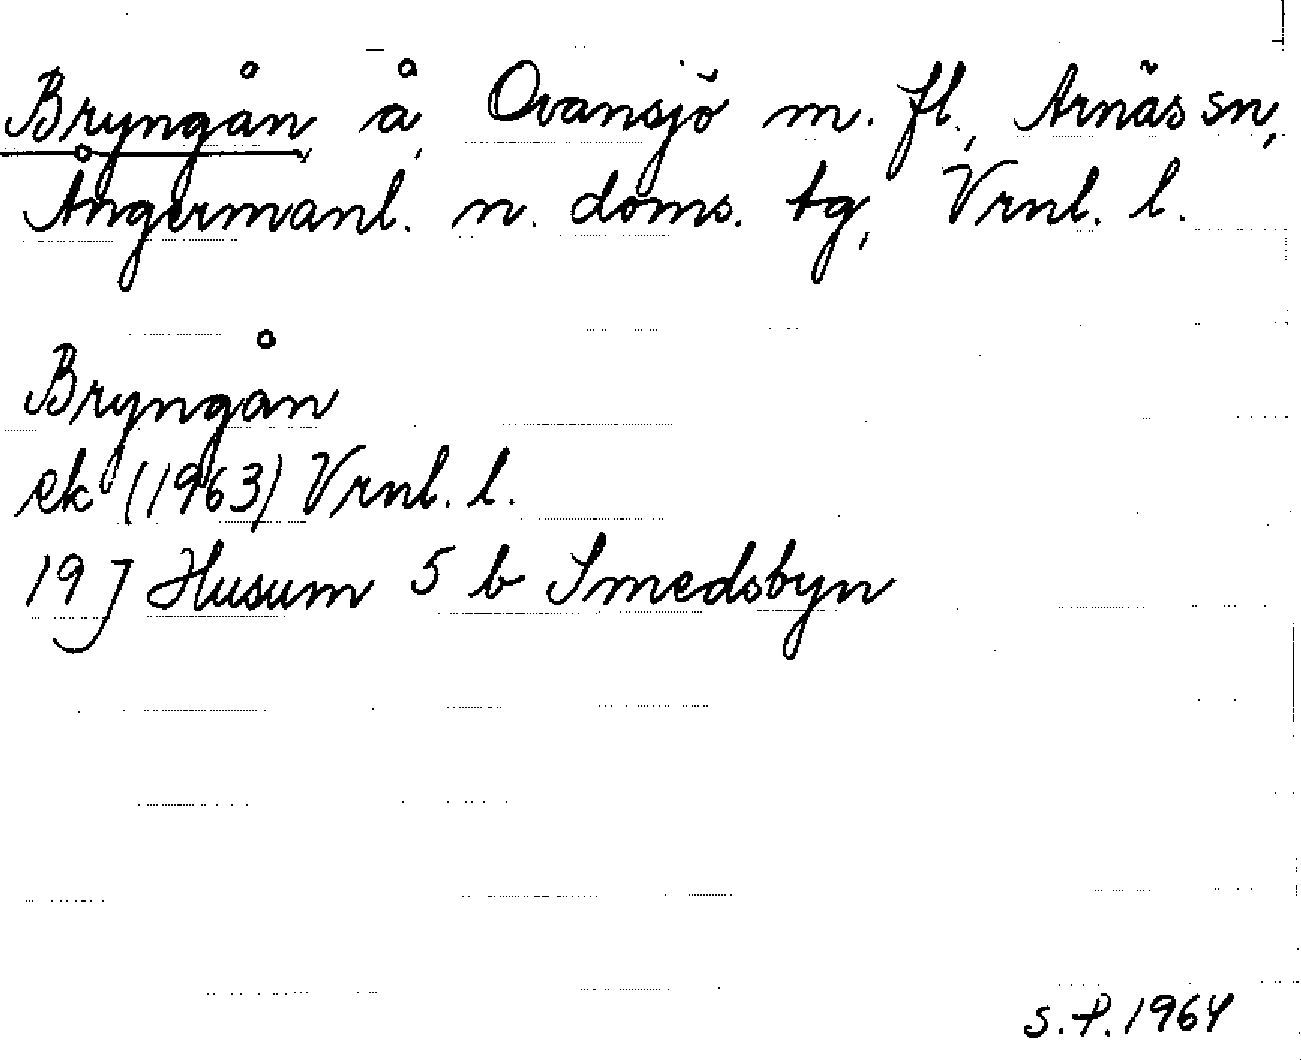 Bryngån å, Ovansjö m. fl., Arnäs sn,
Ångermanl. n. doms. tg, Vrnl. l.
Bryngån
ek (1963) Vrnl. l.
19 J Husum 5 b Smedsbyn
S.P. 1964